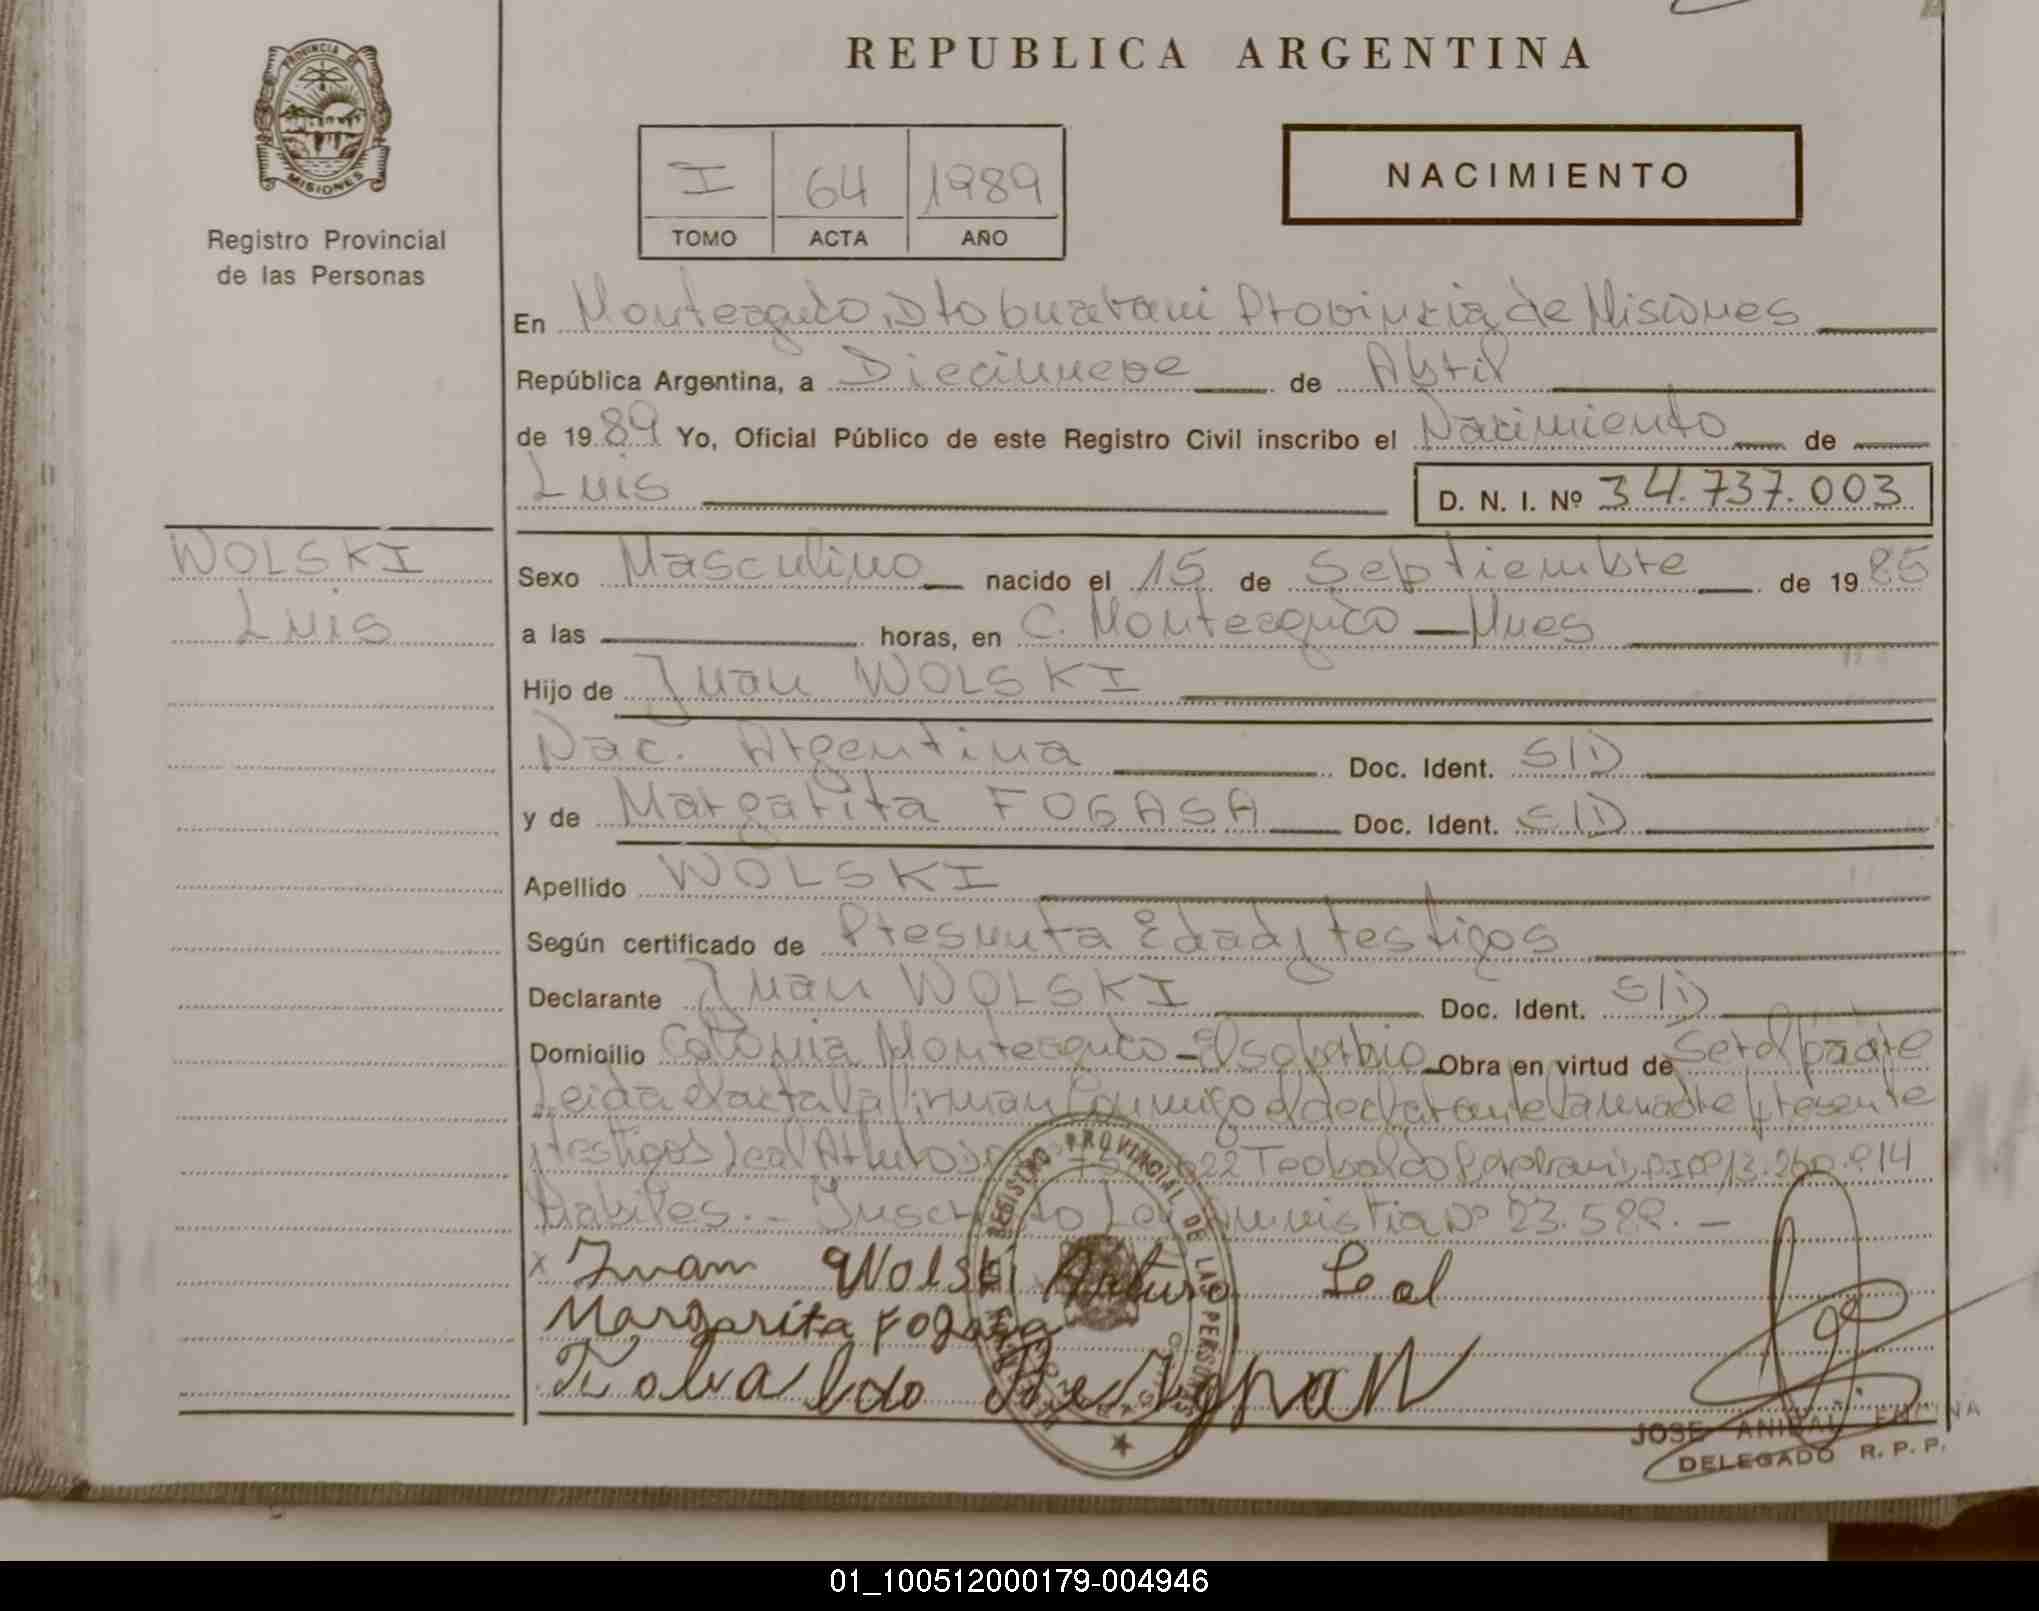 REPUBLICA ARGENTINA
PROVINCIA DE
MISIONES
Registro Provincial
de las Personas
I 64 1989
TOMO ACTA AÑO
NACIMIENTO
En Monteagudo, Dto Guaraní Provincia de Misiones
República Argentina, a Diecinueve de Abril
de 1989 Yo, Oficial Público de este Registro Civil inscribo el Nacimiento de
Luis
D. N. I. Nº 34.737.003
WOLSKI
Luis
Sexo Masculino nacido el 15 de Septiembre de 1985
a las horas, en C. Monteagudo — Mnes
Hijo de Juan WOLSKI
Nac. Argentina Doc. Ident. S/D
y de Margarita FOGASA Doc. Ident. S/D
Apellido WOLSKI
Según certificado de Presunta Edad y testigos
Declarante Juan WOLSKI Doc. Ident. S/D
Domicilio Colonia Monteagudo - El soberbio Obra en virtud de Ser el padre
Leida el acta la firman conmigo el declarante la madre presente
y testigos Leal Arturo 22 Teobaldo D.I. Nº 13.260.914
Habiles. - Inscripto Ley Amnistia Nº 23.599. -
x Juan Wolski Arturo Leal
Margarita Fogasa
REGISTRO PROVINCIAL DE LAS PERSONAS
JOSE ANIBAL
DELEGADO R. P. P.
01_100512000179-004946